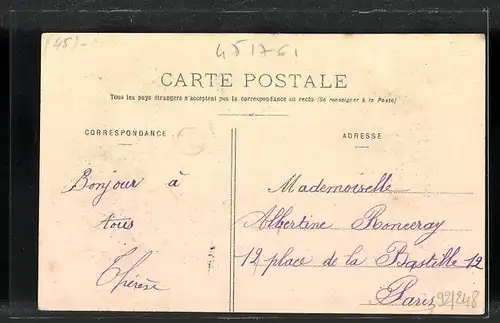 (45)-
451761
CARTE POSTALE
Tous les pays étrangers n'acceptent pas la correspondance au recto (Se renseigner à la Poste)
CORRESPONDANCE
ADRESSE
Bonjour à
tous
Thérèse
Mademoiselle
Albertine Ronceray
12 place de la Bastille 12
Paris
92/248